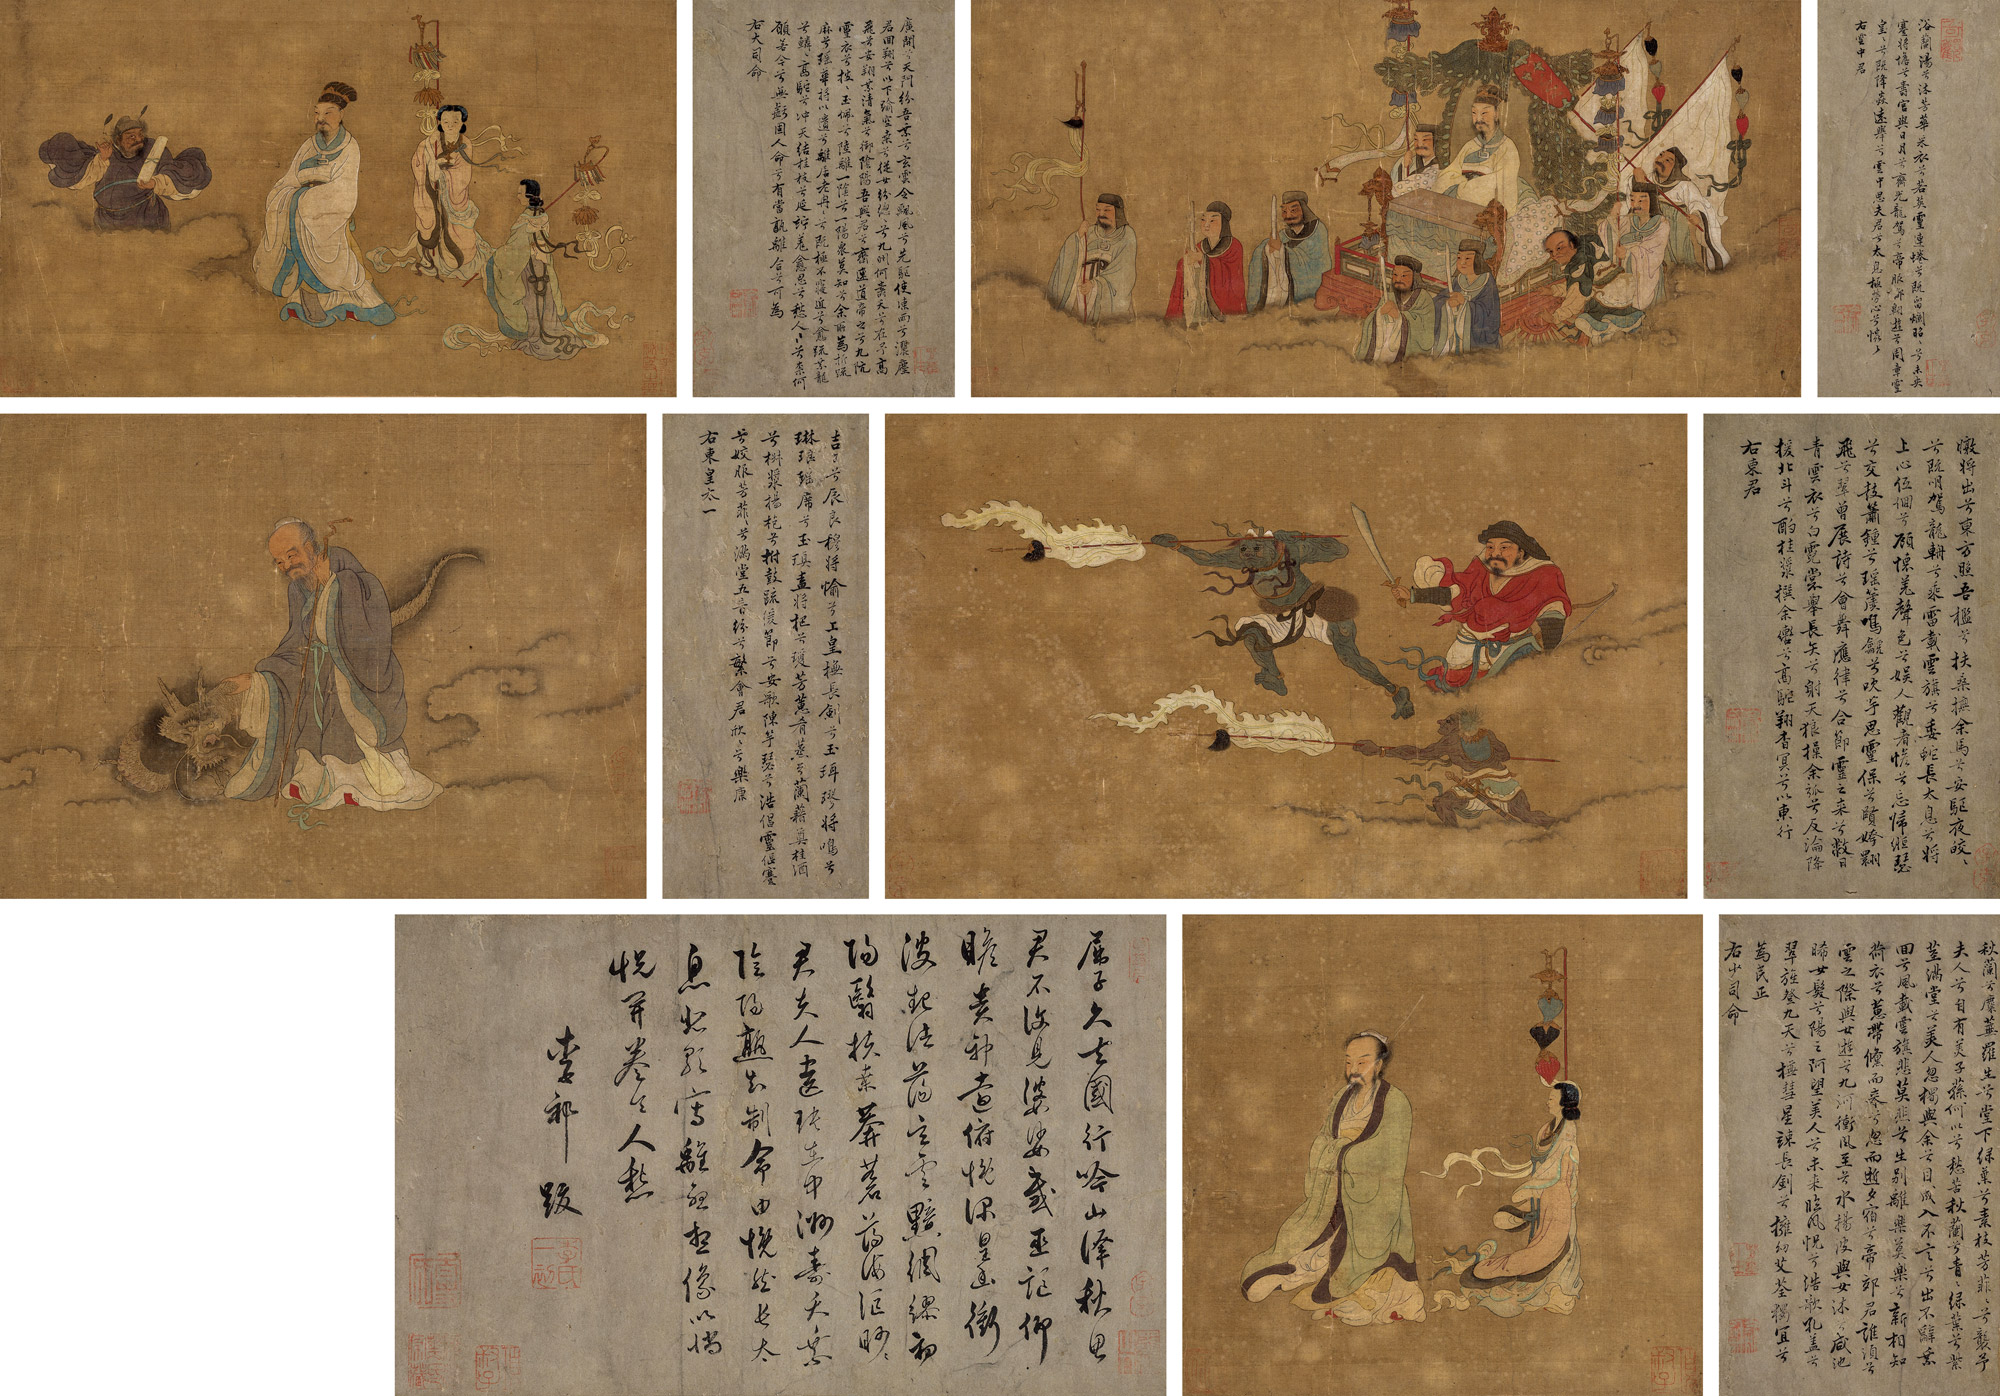 浴蘭湯兮沐芳華采衣兮若英靈連蜷兮既留爛昭〻兮未央
蹇將憺兮壽宮與日月兮齊光龍駕兮帝服聊翱遊兮周章靈
皇〻兮既降猋遠舉兮雲中思夫君兮太息極勞心兮忡〻
右雲中君
廣開兮天門紛吾乘兮玄雲令飄風兮先駈使涷雨兮灑塵
君回翔兮以下踰空桑兮從女紛總〻兮九州何壽夭兮在予高
飛兮安翔乘清氣兮御陰陽吾與君兮齋速道帝之兮九阬
靈衣兮披〻玉佩兮陸離一陰兮一陽衆莫知兮余所為折疏
麻兮瑤華將以遺兮離居老冉〻兮既極不寖近兮愈疏乘龍
兮轔〻高駝兮沖天結桂枝兮延竚羌愈思兮愁人〻兮柰何
願若今兮無虧固人命兮有當孰離合兮可為
右大司命
暾將出兮東方照吾檻兮扶桑撫余馬兮安驅夜皎〻
兮既明駕龍輈兮乘雷載雲旗兮委蛇長太息兮將
上心低徊兮顧懷羌聲色兮娛人觀者憺兮忘歸緪瑟
兮交鼓簫鍾兮瑤簴鳴兮吹竽思靈保兮賢姱翾
飛兮翠曾展詩兮會舞應律兮合節靈之來兮蔽日
青雲衣兮白霓裳舉長矢兮射天狼操余弧兮反淪降
援北斗兮酌桂漿撰余轡兮高駝翔杳冥兮以東行
右東君
吉日兮辰良穆將愉兮上皇撫長劍兮玉珥璆將鳴兮
琳瑯瑤席兮玉瑱盍將把兮瓊芳蕙肴蒸兮蘭藉奠桂酒
兮椒漿揚枹兮拊鼓疏緩節兮安歌陳竽瑟兮浩倡靈偃蹇
兮姣服芳菲〻兮滿堂五音紛兮繁會君欣〻兮樂康
右東皇太一
秋蘭兮麋蕪羅生兮堂下綠葉兮素枝芳菲〻兮襲予
夫人兮自有美子蓀何以兮愁苦秋蘭兮青〻綠葉兮紫
莖滿堂兮美人忽獨與余兮目成入不言兮出不辭乘
回風兮載雲旗悲莫悲兮生別離樂莫樂兮新相知
荷衣兮蕙帶儵而來兮忽而逝夕宿兮帝郊君誰須兮
雲之際與女遊兮九河衝風至兮水揚波與女沐兮咸池
晞女髮兮陽之阿望美人兮未來臨風怳兮浩歌孔蓋兮
翠旌登九天兮撫彗星竦長劍兮擁幼艾荃獨宜兮
為民正
右少司命
屈子久去國行吟山澤秋思
君不復見婆娑感巫記仰
瞻
陽翳扶桑
君夫人遺玦在中洲壽夭乘
陰陽
息
人愁
李祁跋